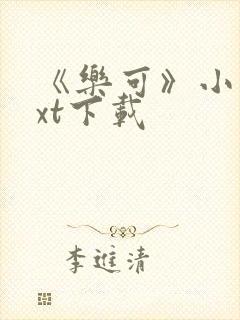 《樂可》小
xt下載
李進清